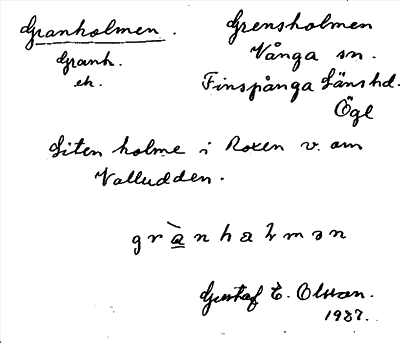 Granholmen.
Granh.
ek.
Grensholmen
Vånga sn.
Finspånga Länshd.
Ögl
Liten holme i Roxen v. om
Valludden.
grànhaɫmən
Gustaf E. Olsson.
1937.